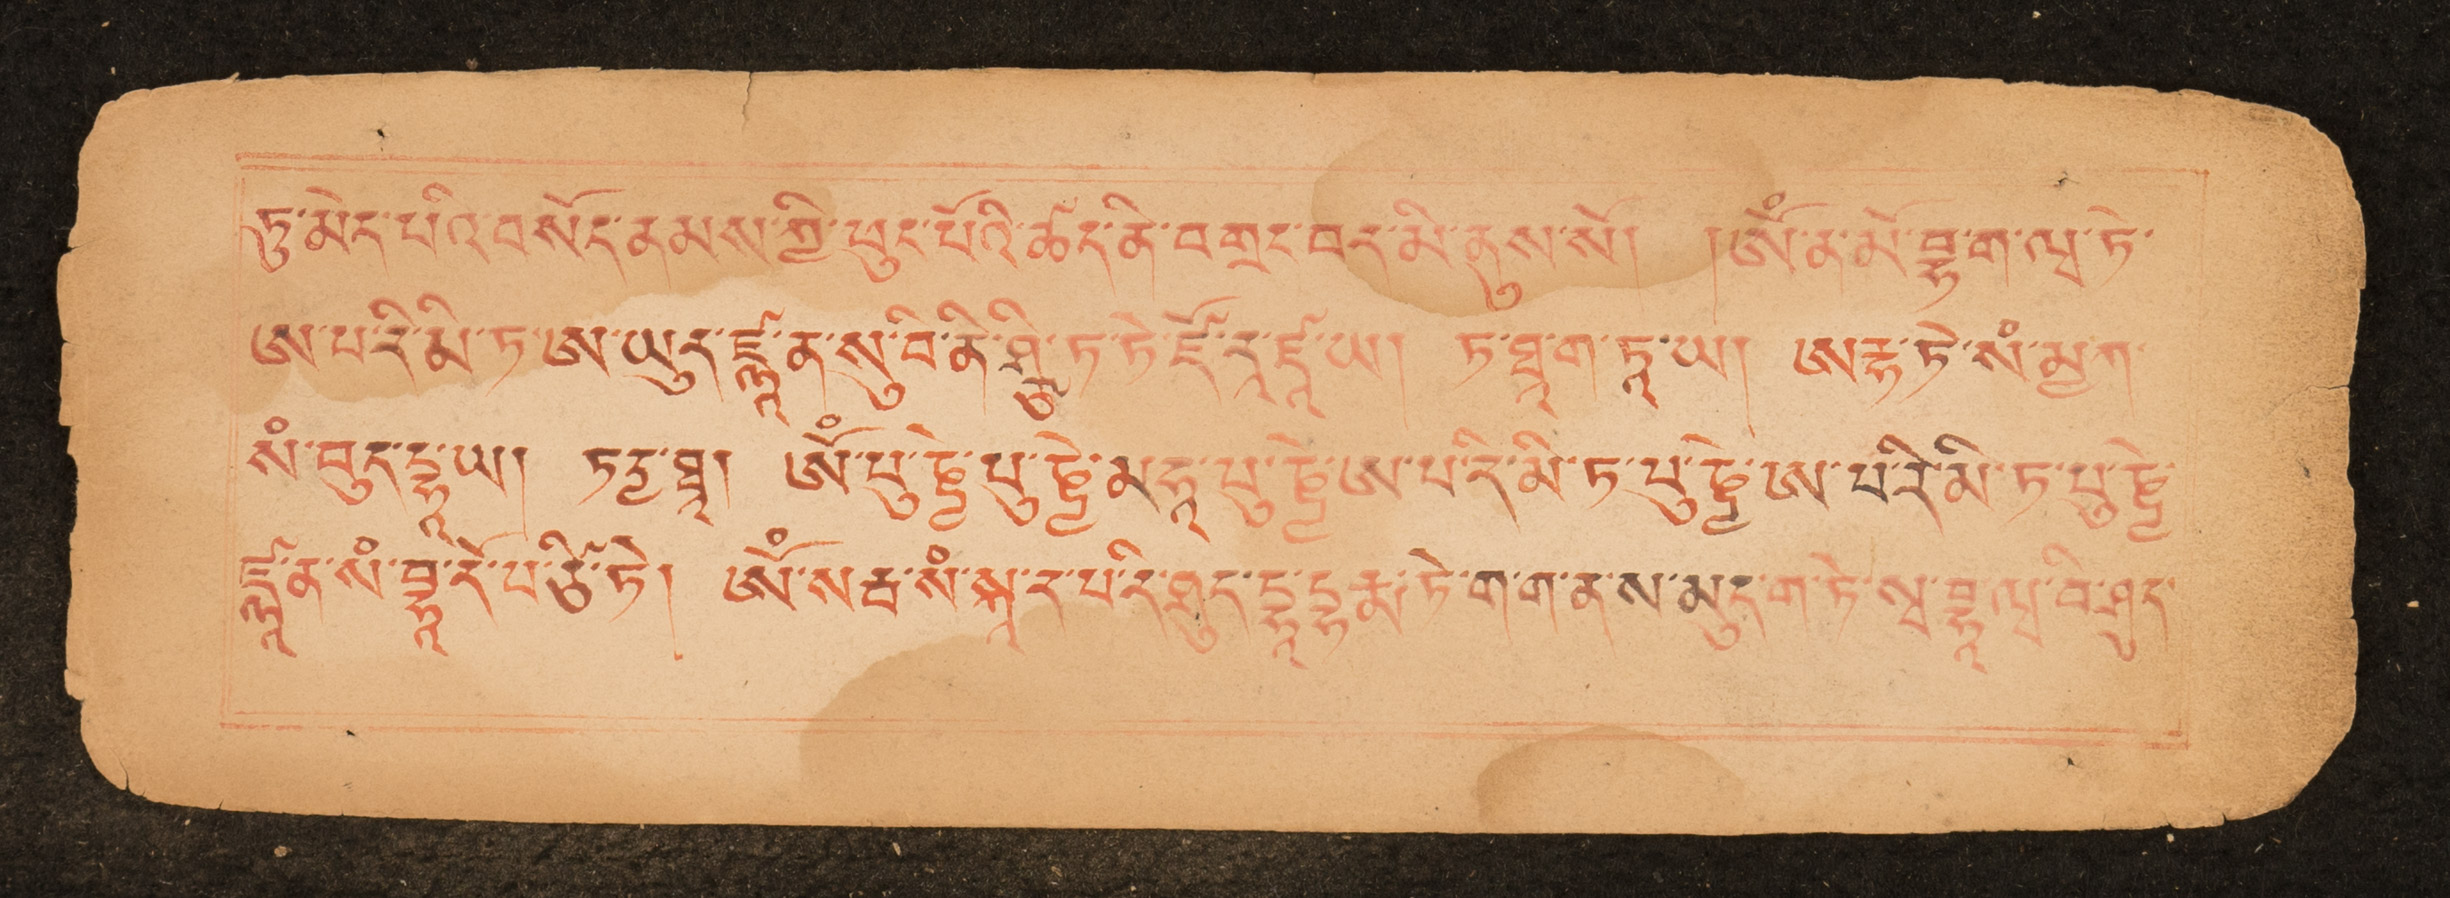 ཏུ་མེད་པའི་བསོད་ནམས་ཀྱི་ཕུང་པོའི་ཚད་ནི་བགྲང་བར་མི་ནུས་སོ། །ཨོཾ་ན་མོ་བྷ་ག་ལྦ་ཏེ་
ཨ་པ་རི་མི་ཏ་ཨ་ཡུར་ཛྙཱ་ན་སུ་བི་ནི་ཤྩི་ཏ་ཏེ་ཛོ་རཱ་ཛཱ་ཡ། ཏ་ཐཱ་ག་ཏཱ་ཡ། ཨརྷ་ཏེ་སཾ་མྱཀ་
སཾ་བུད་དྷཱ་ཡ། ཏདྱ་ཐཱ། ཨོཾ་པུ་ཎྱེ་པུ་ཎྱེ་མ་ཧཱ་པུ་ཎྱེ་ཨ་པ་རི་མི་ཏ་པུ་ཎྱེ་ཨ་པ་རི་མི་ཏ་པུ་ཎྱེ་
ཛྙཱ་ན་སཾ་བྷཱ་རོ་པ་ཙི་ཏེ། ཨོཾ་སརྦ་སཾ་སྐཱ་ར་པ་རི་ཤུད་དྷཱ་དྷརྨ་ཏེ་ག་ག་ན་ས་མུད་ག་ཏེ་སྭ་བྷཱ་ལྦ་བི་ཤུད་